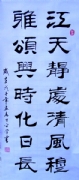 江天靜處清風穆
雅頌興時化日長